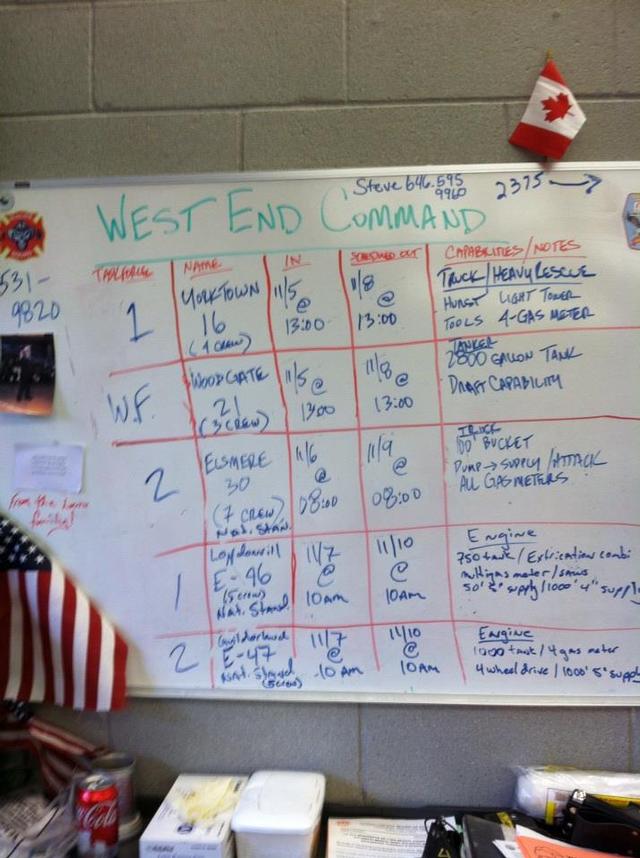 Steve 646.595
9960
2375 →
WEST END COMMAND
531-
9820
TASKFORCE NAME IN SCHEDULED OUT CAPABILITIES/NOTES
1
YORKTOWN
16
(4 CREW)
11/5
@
13:00
11/8
@
13:00
TRUCK/HEAVY RESCUE
HURST LIGHT TOWER
TOOLS 4-GAS METER
W.F.
WOODGATE
21
(3 CREW)
11/5
@
1300
11/8
@
13:00
TANKER
2800 GALLON TANK
DRAFT CAPABILITY
2
ELSMERE
30
(7 CREW)
Nat. Stan.
11/6
@
08:00
11/9
@
08:00
TRUCK
100' BUCKET
PUMP → SUPPLY/ATTACK
ALL GAS METERS
From the
families!
1
E-46
(5 crew)
Nat. Stand.
11/7
@
10AM
11/10
@
10AM
Engine
750 tank / Extrication combi
multigas meter / saws
50' 5" supply / 1000' 4" supply
2
Guilderland
E-47
Nat. Stand
(5 crew)
11/7
@
10 AM
11/10
@
10AM
Engine
1000 tank / 4 gas meter
4 wheel drive / 1000' 5" supply
Coca-Cola